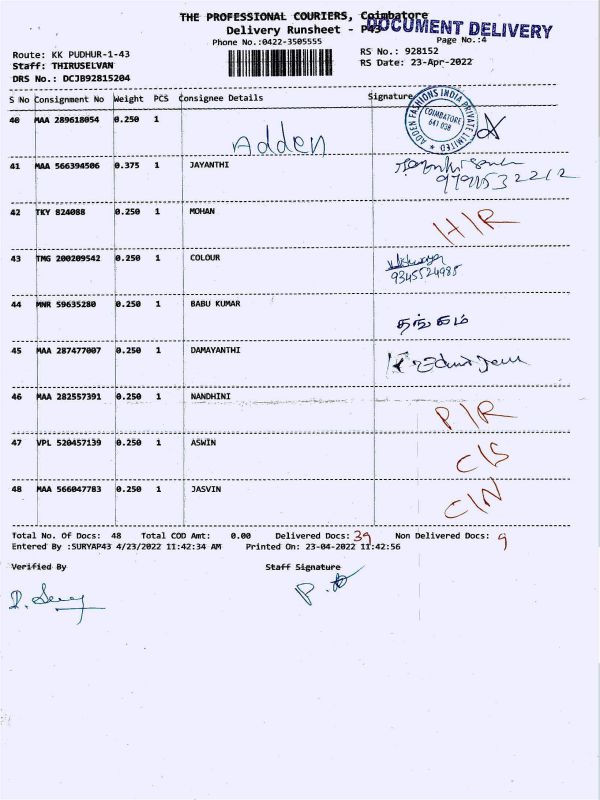 THE PROFESSIONAL COURIERS, Coimbatore
DOCUMENT DELIVERY
Delivery Runsheet - P43
Phone No.:0422-3505555 Page No.:4
Route: KK PUDHUR-1-43 RS No.: 928152
Staff: THIRUSELVAN RS Date: 23-Apr-2022
DRS No.: DCJB92815204
S No Consignment No Weight PCS Consignee Details Signature
40 MAA 289618054 0.250 1 Adden
ADDEN FASHIONS INDIA PRIVATE LIMITED ★
COIMBATORE
641 038
41 MAA 566394506 0.375 1 JAYANTHI
42 TKY 824088 0.250 1 MOHAN H/R
43 TMG 200209542 0.250 1 COLOUR
9345524985
44 MNR 59635280 0.250 1 BABU KUMAR தங்கம்
45 MAA 287477007 0.250 1 DAMAYANTHI
46 MAA 282557391 0.250 1 NANDHINI P/R
47 VPL 520457139 0.250 1 ASWIN C/S
48 MAA 566047783 0.250 1 JASVIN C/N
Total No. Of Docs: 48 Total COD Amt: 0.00 Delivered Docs: 39 Non Delivered Docs: 9
Entered By :SURYAP43 4/23/2022 11:42:34 AM Printed On: 23-04-2022 11:42:56
Verified By Staff Signature